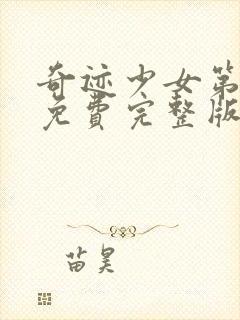 奇迹少女第
免费完整版
苗昊